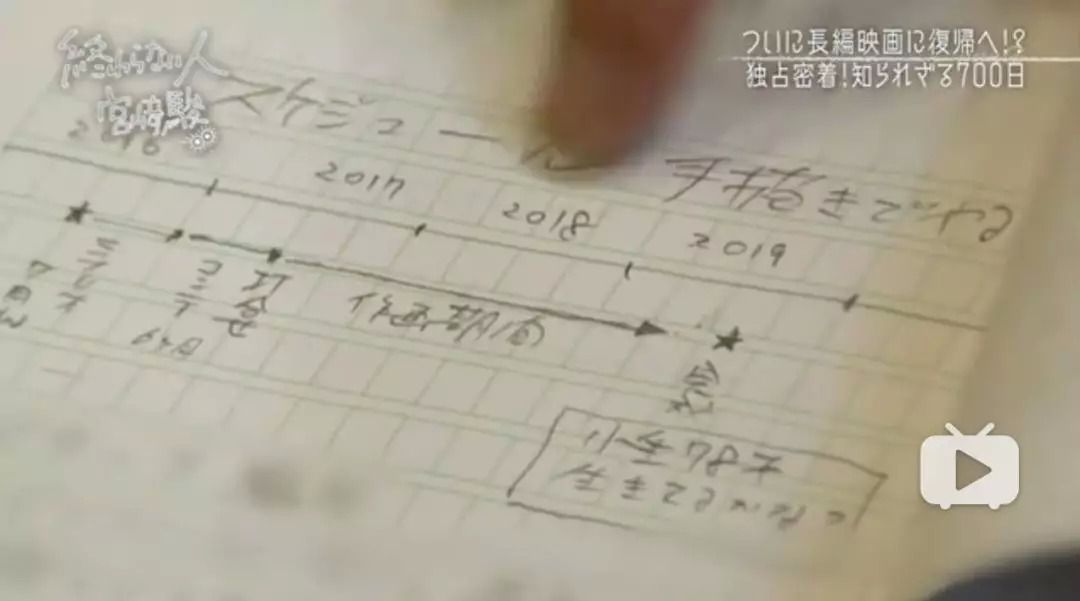 終わらない人
宮﨑駿
ついに長編映画に復帰へ!?
独占密着!知られざる700日
スケジュール 手描きでやる
2016 2017 2018 2019
コンテ 打合せ 作画期間
6ヶ月
完成
小生78才
生きてるかなァ